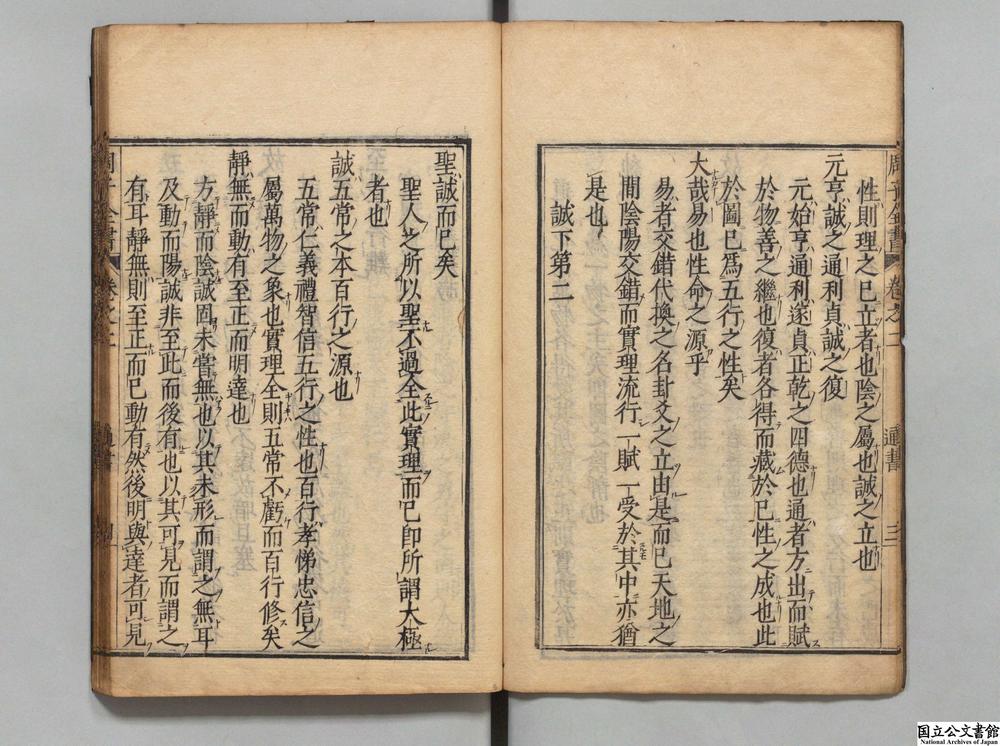 性則理之已立者也陰之屬也誠之立也
元亨誠之通利貞誠之復
元始亨通利遂貞正乾之四德也通者方出而賦
於物善之繼也復者各得而藏於已性之成也此
於圖已爲五行之性矣
大哉易也性命之源乎
易者交錯代換之名卦爻之立由是而已天地之
間陰陽交錯而實理流行一賦一受於其中亦猶
是也
誠下第二
聖誠而已矣
聖人之所以聖不過全此實理而已即所謂太極
者也
誠五常之本百行之源也
五常仁義禮智信五行之性也百行孝悌忠信之
屬萬物之象也實理全則五常不虧而百行修矣
靜無而動有至正而明達也
方靜而陰誠固未嘗無也以其未形而謂之無耳
及動而陽誠非至此而後有也以其可見而謂之
有耳靜無則至正而已動有然後明與達者可見
国立公文書館
National Archives of Japan